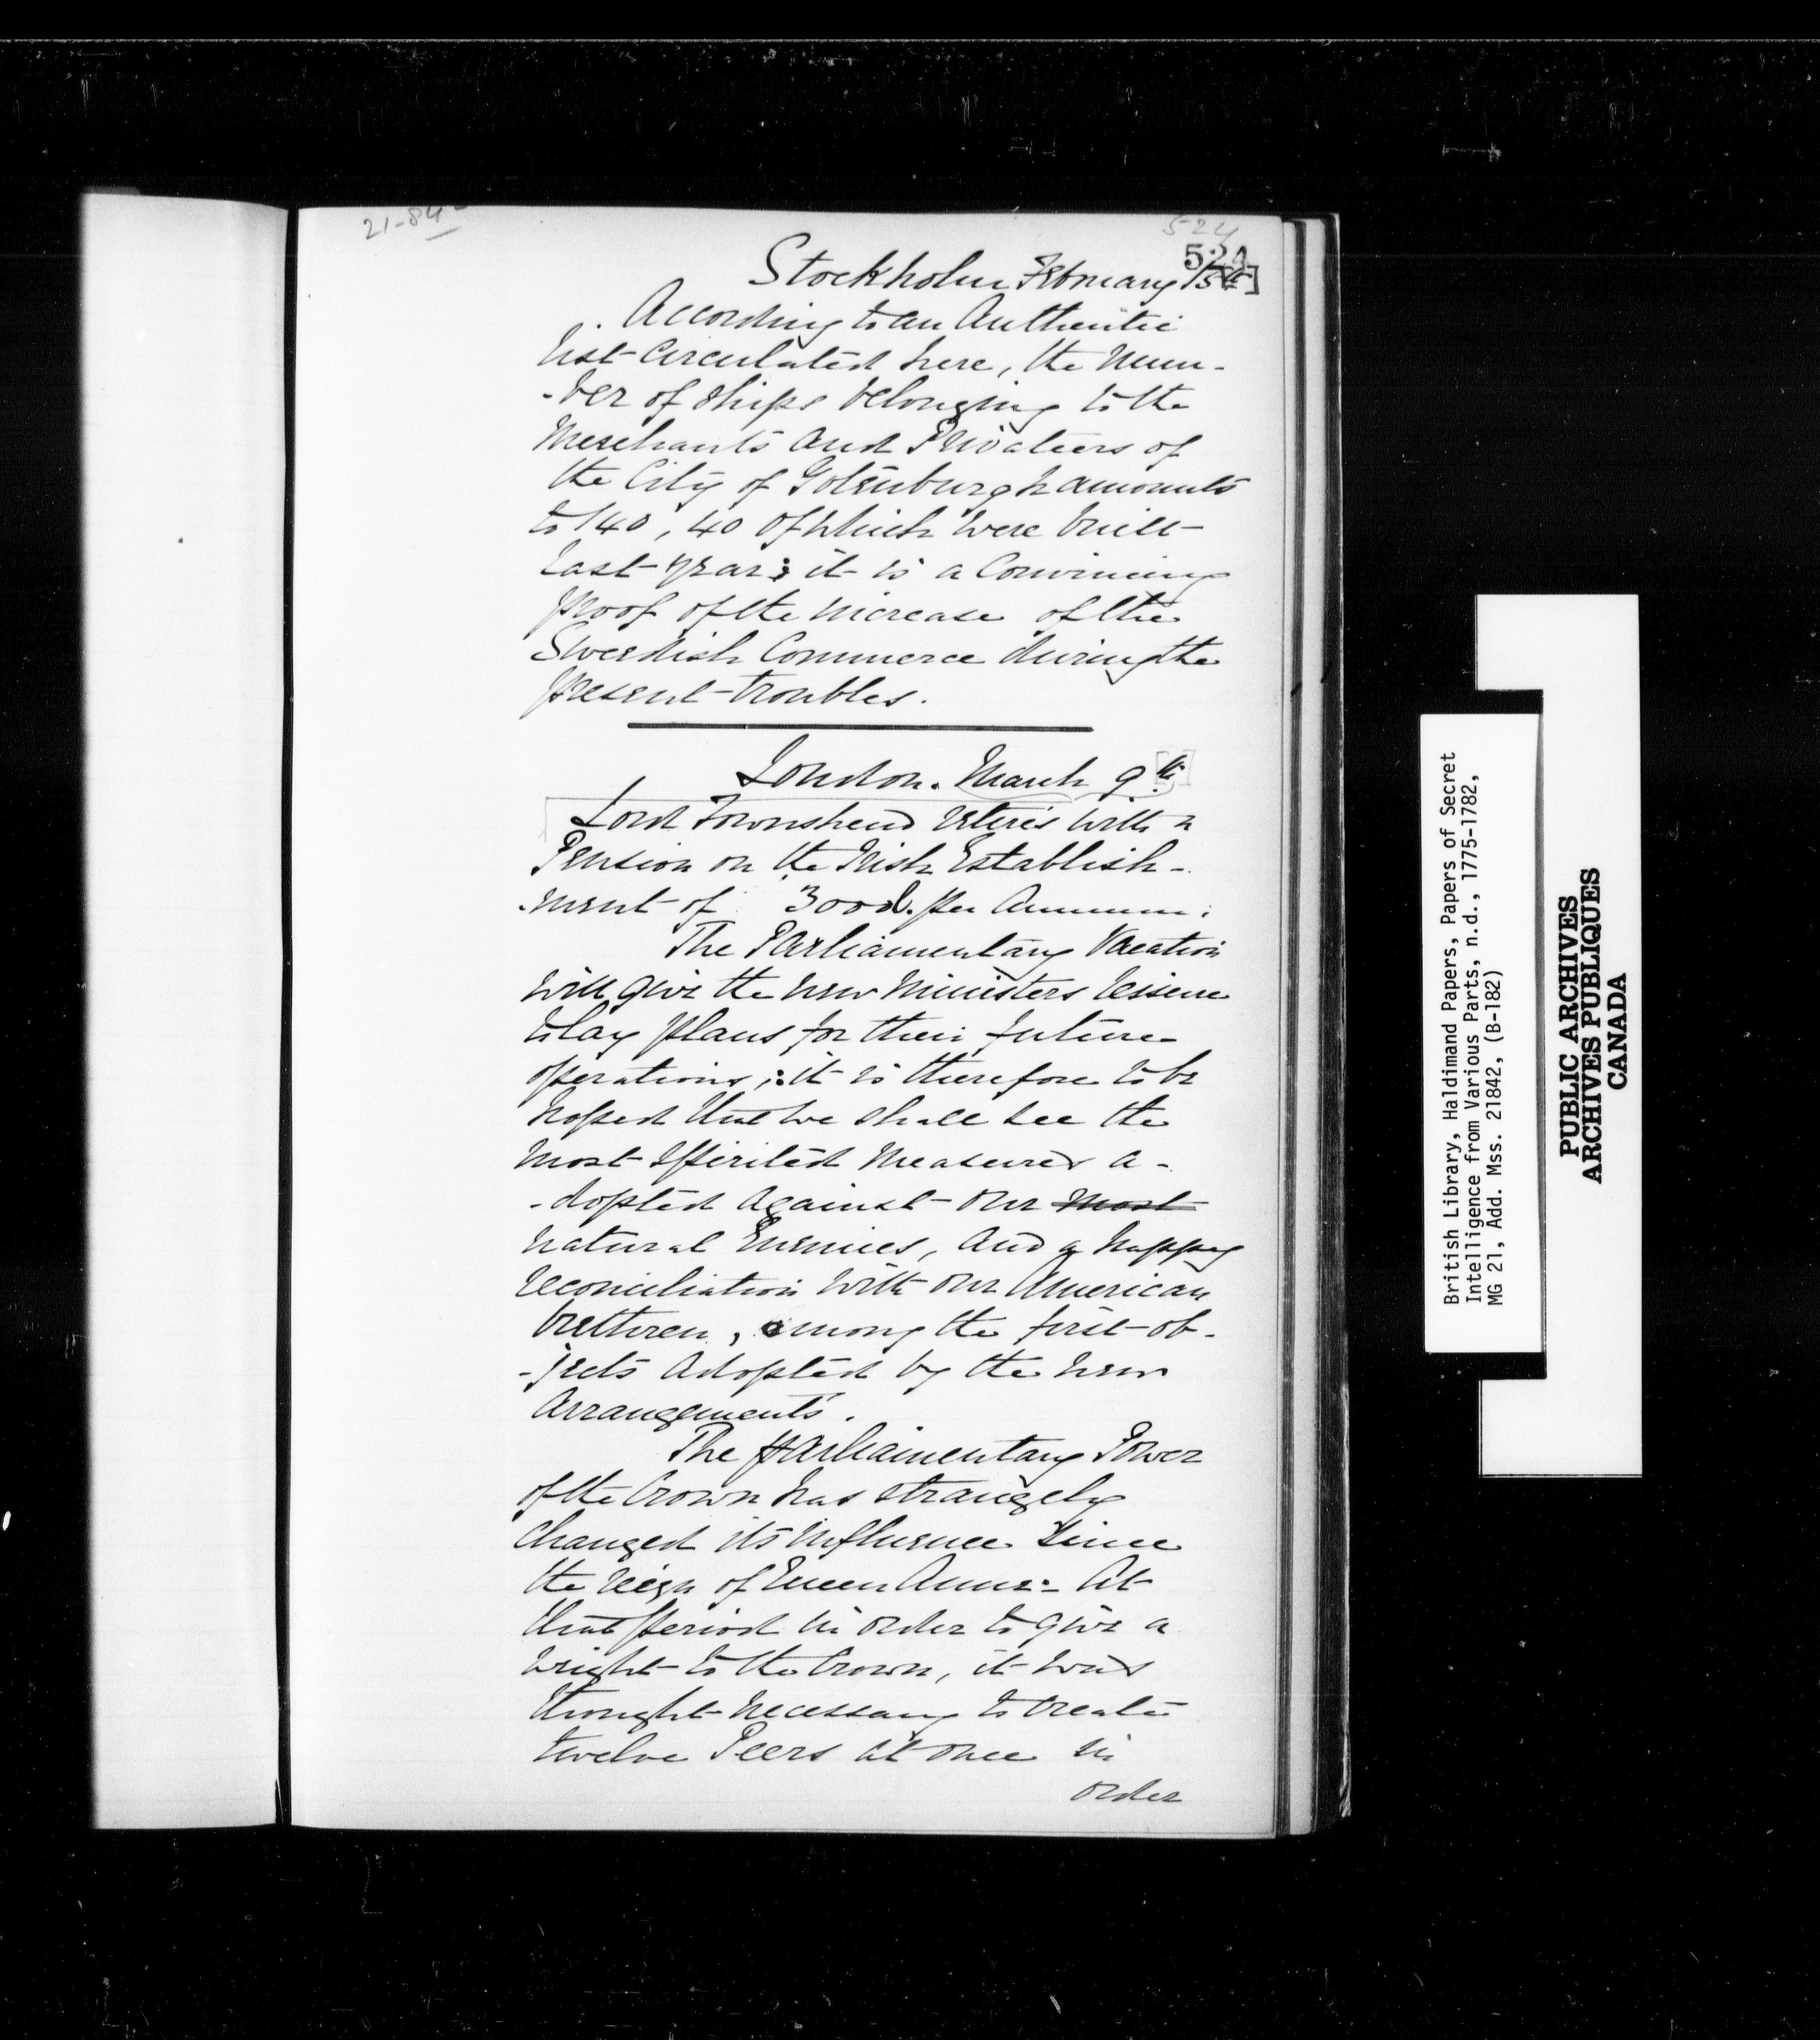 21-84
524
524
Stockholm February 15th]
According to an Authentic
list circulated here, the num-
-ber of ships belonging to the
Merchants and Privateers of
the City of Gotenburgh amounts
to 140, 40 of which were built
last year; it is a Convincing
proof of the increase of the
Swedish Commerce during the
present troubles.
London. March 9th
Lord Townshend retires with a
Pension on the Irish Establish-
-ment of 3000l. per Annum.
The Parliamentary Vacation
will give the new Ministers leisure
to lay plans for their future
operations; it is therefore to be
hoped that we shall see the
most spirited measures a-
-dopted against our most
natural Enemies, and a happy
reconciliation with our American
brethren, among the first ob-
-jects adopted by the new
Arrangements.
The parliamentary Power
of the Crown has strangely
changed its influence since
the reign of Queen Anne: At
that period in order to give a
weight to the Crown, it was
thought necessary to create
twelve Peers at once in
order
British Library, Haldimand Papers, Papers of Secret
Intelligence from Various Parts, n.d., 1775-1782,
MG 21, Add. Mss. 21842, (B-182)
PUBLIC ARCHIVES
ARCHIVES PUBLIQUES
CANADA